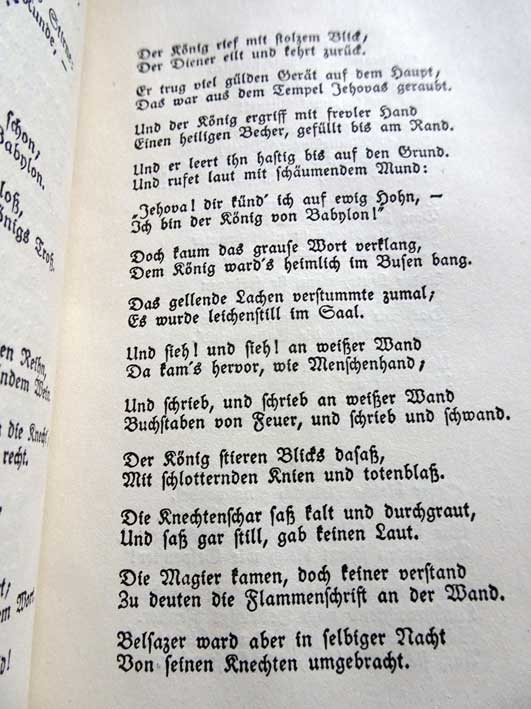 schon,
Babylon.
Königs Troß.
Reihn,
die Knecht
recht.
Der König rief mit stolzem Blick,
Der Diener eilt und kehrt zurück.
Er trug viel gülden Gerät auf dem Haupt,
Das war aus dem Tempel Jehovas geraubt.
Und der König ergriff mit frevler Hand
Einen heiligen Becher, gefüllt bis am Rand.
Und er leert ihn hastig bis auf den Grund.
Und rufet laut mit schäumendem Mund:
„Jehova! dir künd' ich auf ewig Hohn, –
Ich bin der König von Babylon!“
Doch kaum das grause Wort verklang,
Dem König ward's heimlich im Busen bang.
Das gellende Lachen verstummte zumal;
Es wurde leichenstill im Saal.
Und sieh! und sieh! an weißer Wand
Da kam's hervor, wie Menschenhand;
Und schrieb, und schrieb an weißer Wand
Buchstaben von Feuer, und schrieb und schwand.
Der König stieren Blicks dasaß,
Mit schlotternden Knien und totenblaß.
Die Knechtenschar saß kalt und durchgraut,
Und saß gar still, gab keinen Laut.
Die Magier kamen, doch keiner verstand
Zu deuten die Flammenschrift an der Wand.
Belsazer ward aber in selbiger Nacht
Von seinen Knechten umgebracht.